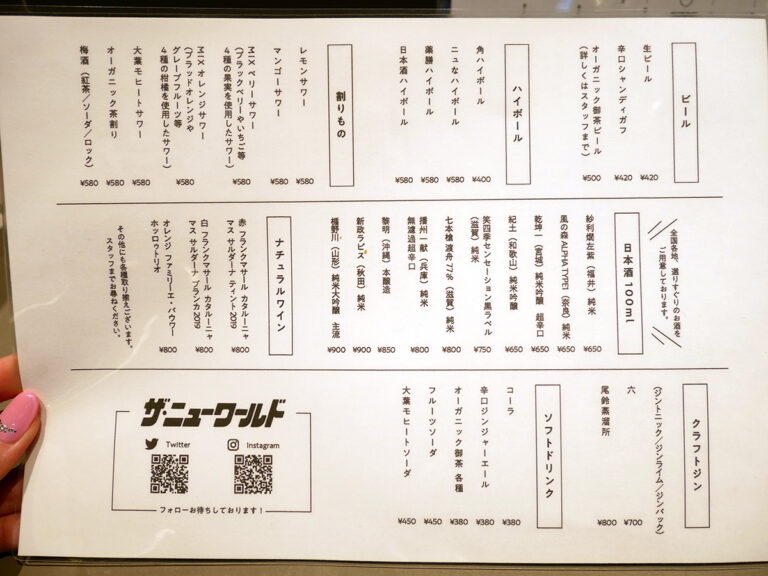 ビール
生ビール ¥420
辛口シャンディガフ ¥420
オーガニック御茶ビール
(詳しくはスタッフまで) ¥500
ハイボール
角ハイボール ¥400
ニュなハイボール ¥580
薬膳ハイボール ¥580
日本酒ハイボール ¥580
割りもの
レモンサワー ¥580
マンゴーサワー ¥580
MIX ベリーサワー
(ブラックベリーやいちご等
4種の果実を使用したサワー) ¥580
MIX オレンジサワー
(ブラッドオレンジや
グレープフルーツ等
4種の柑橘を使用したサワー) ¥580
大葉モヒートサワー ¥580
オーガニック茶割り ¥580
梅酒(紅茶/ソーダ/ロック) ¥580
全国各地、選りすぐりのお酒を
ご用意しております。
日本酒 100ml
紗利 燗左紫(福井)純米 ¥650
風の森 ALPHA TYPE1(奈良)純米 ¥650
乾坤一(宮城)純米吟醸 超辛口 ¥650
紀土(和歌山)純米吟醸 ¥650
笑四季センセーション黒ラベル
(滋賀)純米 ¥750
七本槍 渡舟 77%(滋賀)純米 ¥800
播州一献(兵庫)純米
無濾過超辛口 ¥800
黎明(沖縄)本醸造 ¥850
新政ラピス(秋田)純米 ¥900
楯野川(山形)純米大吟醸 主流 ¥900
ナチュラルワイン
赤 フランクマサール カタルーニャ
マス サルダーナ ティント 2019 ¥800
白 フランクマサール カタルーニャ
マス サルダーナ ブランカ 2019 ¥800
オレンジ ファミリーエ・バウワー
ホッロゥトリオ ¥800
その他にも各種取り揃えございます。
スタッフまでお尋ねください。
クラフトジン
(ジントニック/ジンライム/ジンバック)
六 ¥700
尾鈴蒸溜所 ¥800
ソフトドリンク
コーラ ¥380
辛口ジンジャーエール ¥380
オーガニック御茶 各種 ¥380
フルーツソーダ ¥450
大葉モヒートソーダ ¥450
ザ・ニューワールド
Twitter
Instagram
フォローお待ちしております!